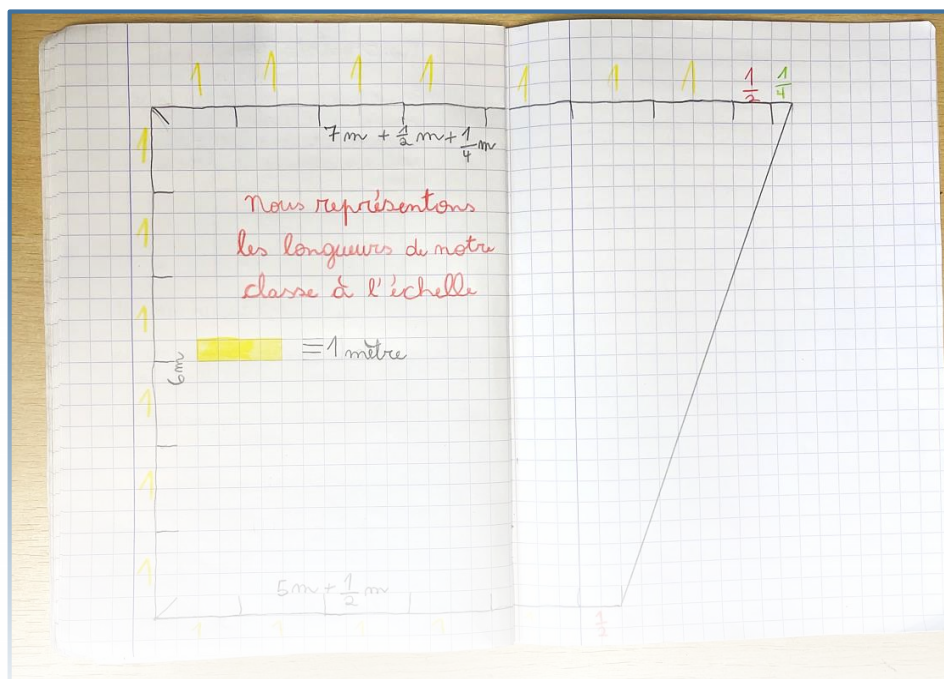 1 1 1 1 1 1 1 1/2 1/4
7m + 1/2 m + 1/4 m
1
1
1
1
1
1
Nous représentons
les longueurs de notre
classe à l'échelle
= 1 mètre
6m
5m + 1/2 m
1 1 1 1 1/2